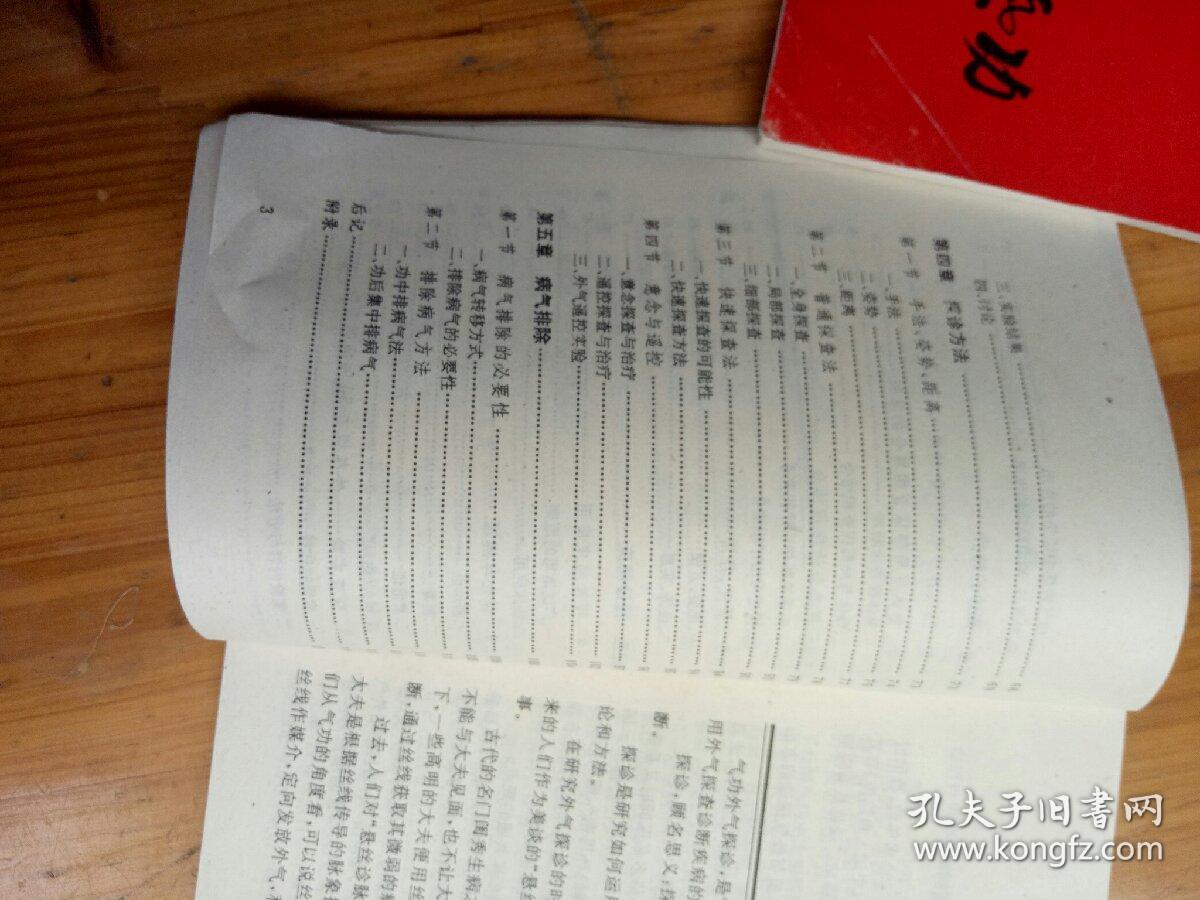 气功
三、实验结果
四、讨论
第四章 探诊方法
第一节 手法、姿势、距离
一、手法
二、姿势
三、距离
第二节 普通探查法
一、全身探查
二、局部探查
三、细部探查
第三节 快速探查法
一、快速探查的可能性
二、快速探查方法
第四节 意念与遥控
一、意念探查与治疗
二、遥控探查与治疗
三、外气遥控实验
第五章 病气排除
第一节 病气排除的必要性
一、病气转移方式
二、排除病气的必要性
第二节 排除病气方法
一、功中排病气法
二、功后集中排病气
后记
附录
3
气功外气探诊,是
用外气探查诊断疾病的
探诊,顾名思义,探
断。
探诊是研究如何运
论和方法。
在研究外气探诊的时
来的人们作为美谈的“悬丝
事。
古代的名门闺秀生病之
不能与大夫见面,也不让大
下,一些高明的大夫便用丝
断,通过丝线获取其微弱的
过去,人们对“悬丝诊脉
大夫是根据丝线传导的脉象
们从气功的角度看,可以说丝
丝线作媒介,定向发放外气,
孔夫子旧书网
www.kongfz.com